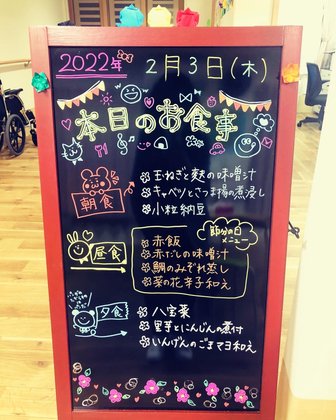 2022年
2月3日(木)
本日のお食事
朝食
玉ねぎと麩の味噌汁
キャベツとさつま揚の煮浸し
小粒納豆
節分の日
メニュー
昼食
赤飯
赤だしの味噌汁
鯛のみぞれ蒸し
菜の花辛子和え
夕食
八宝菜
里芋とにんじんの煮付
いんげんのごまマヨ和え